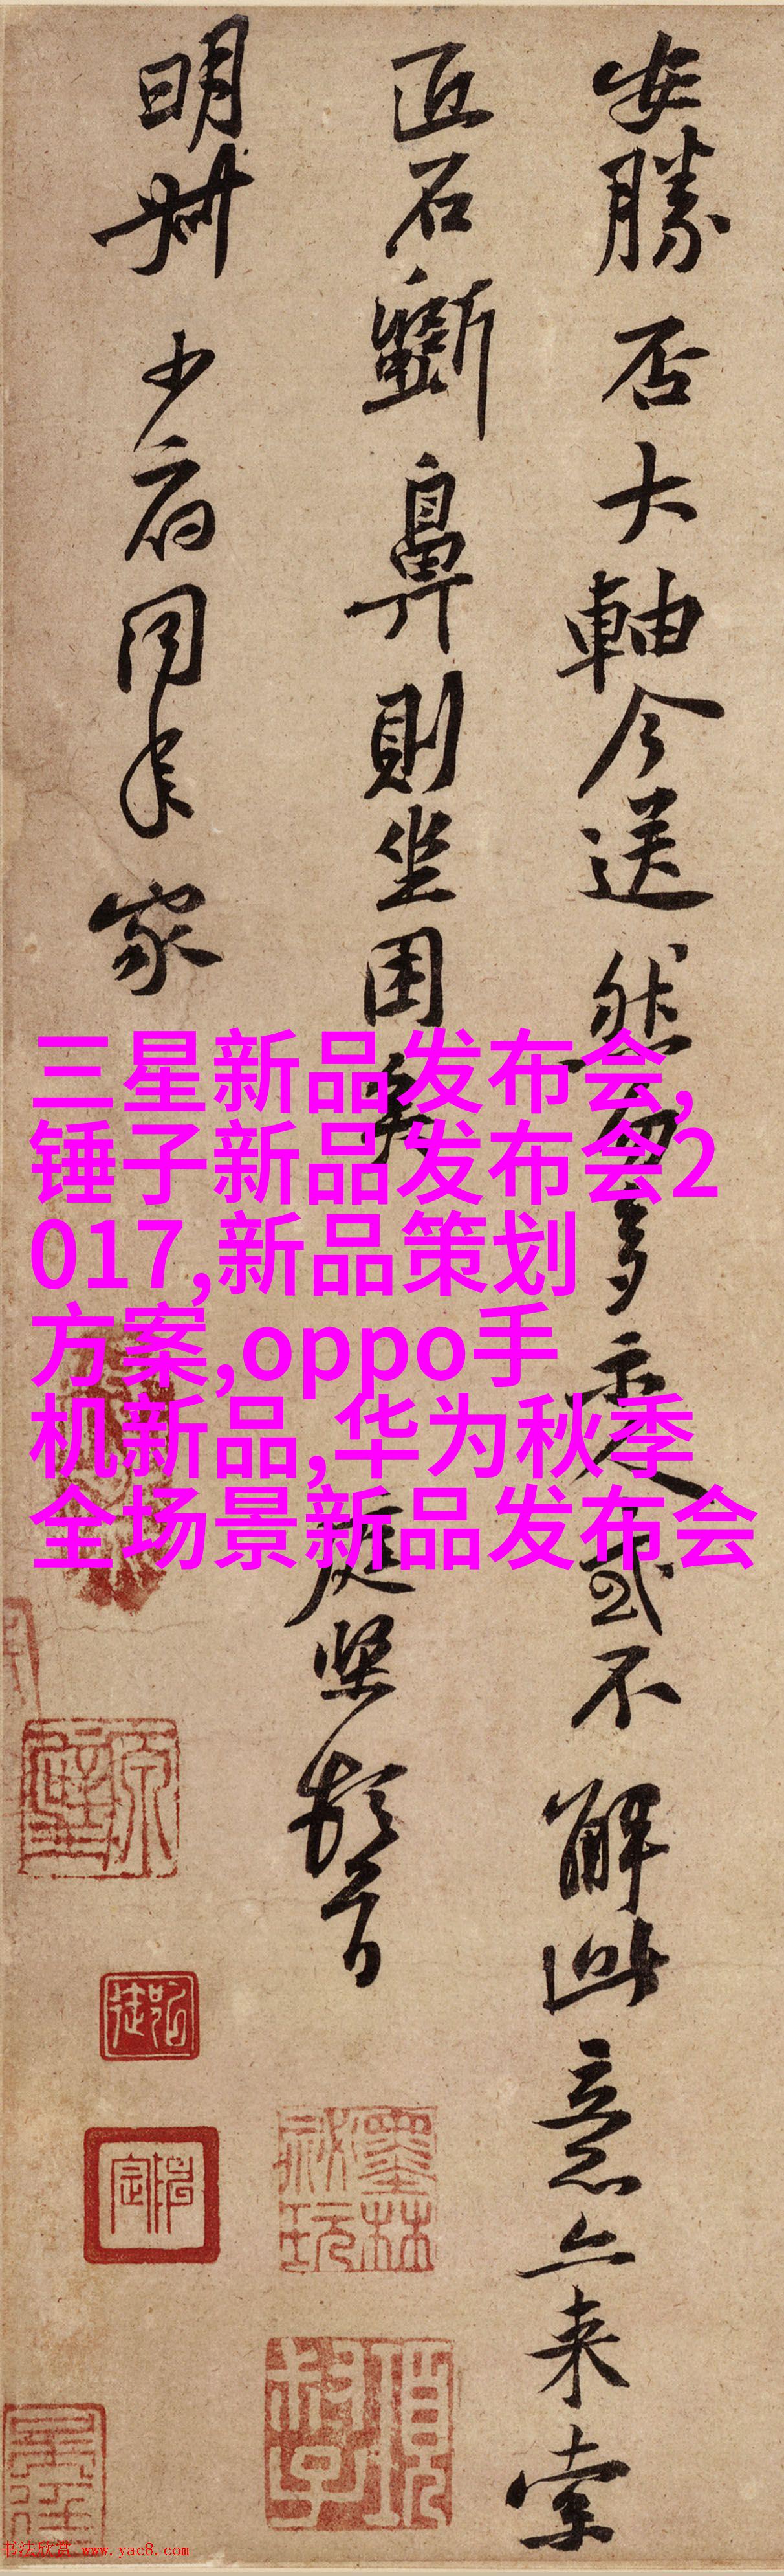 安勝否大軸今送然勿多示人或不解此意亦来索
匠石斲鼻則坐困矣 庭堅頓首
明叔少府同年家
三星新品发布会,
锤子新品发布会2
017,新品策划
方案,oppo手
机新品,华为秋季
全场景新品发布会
墨林
祕玩
书法欣赏 www.yac8.com